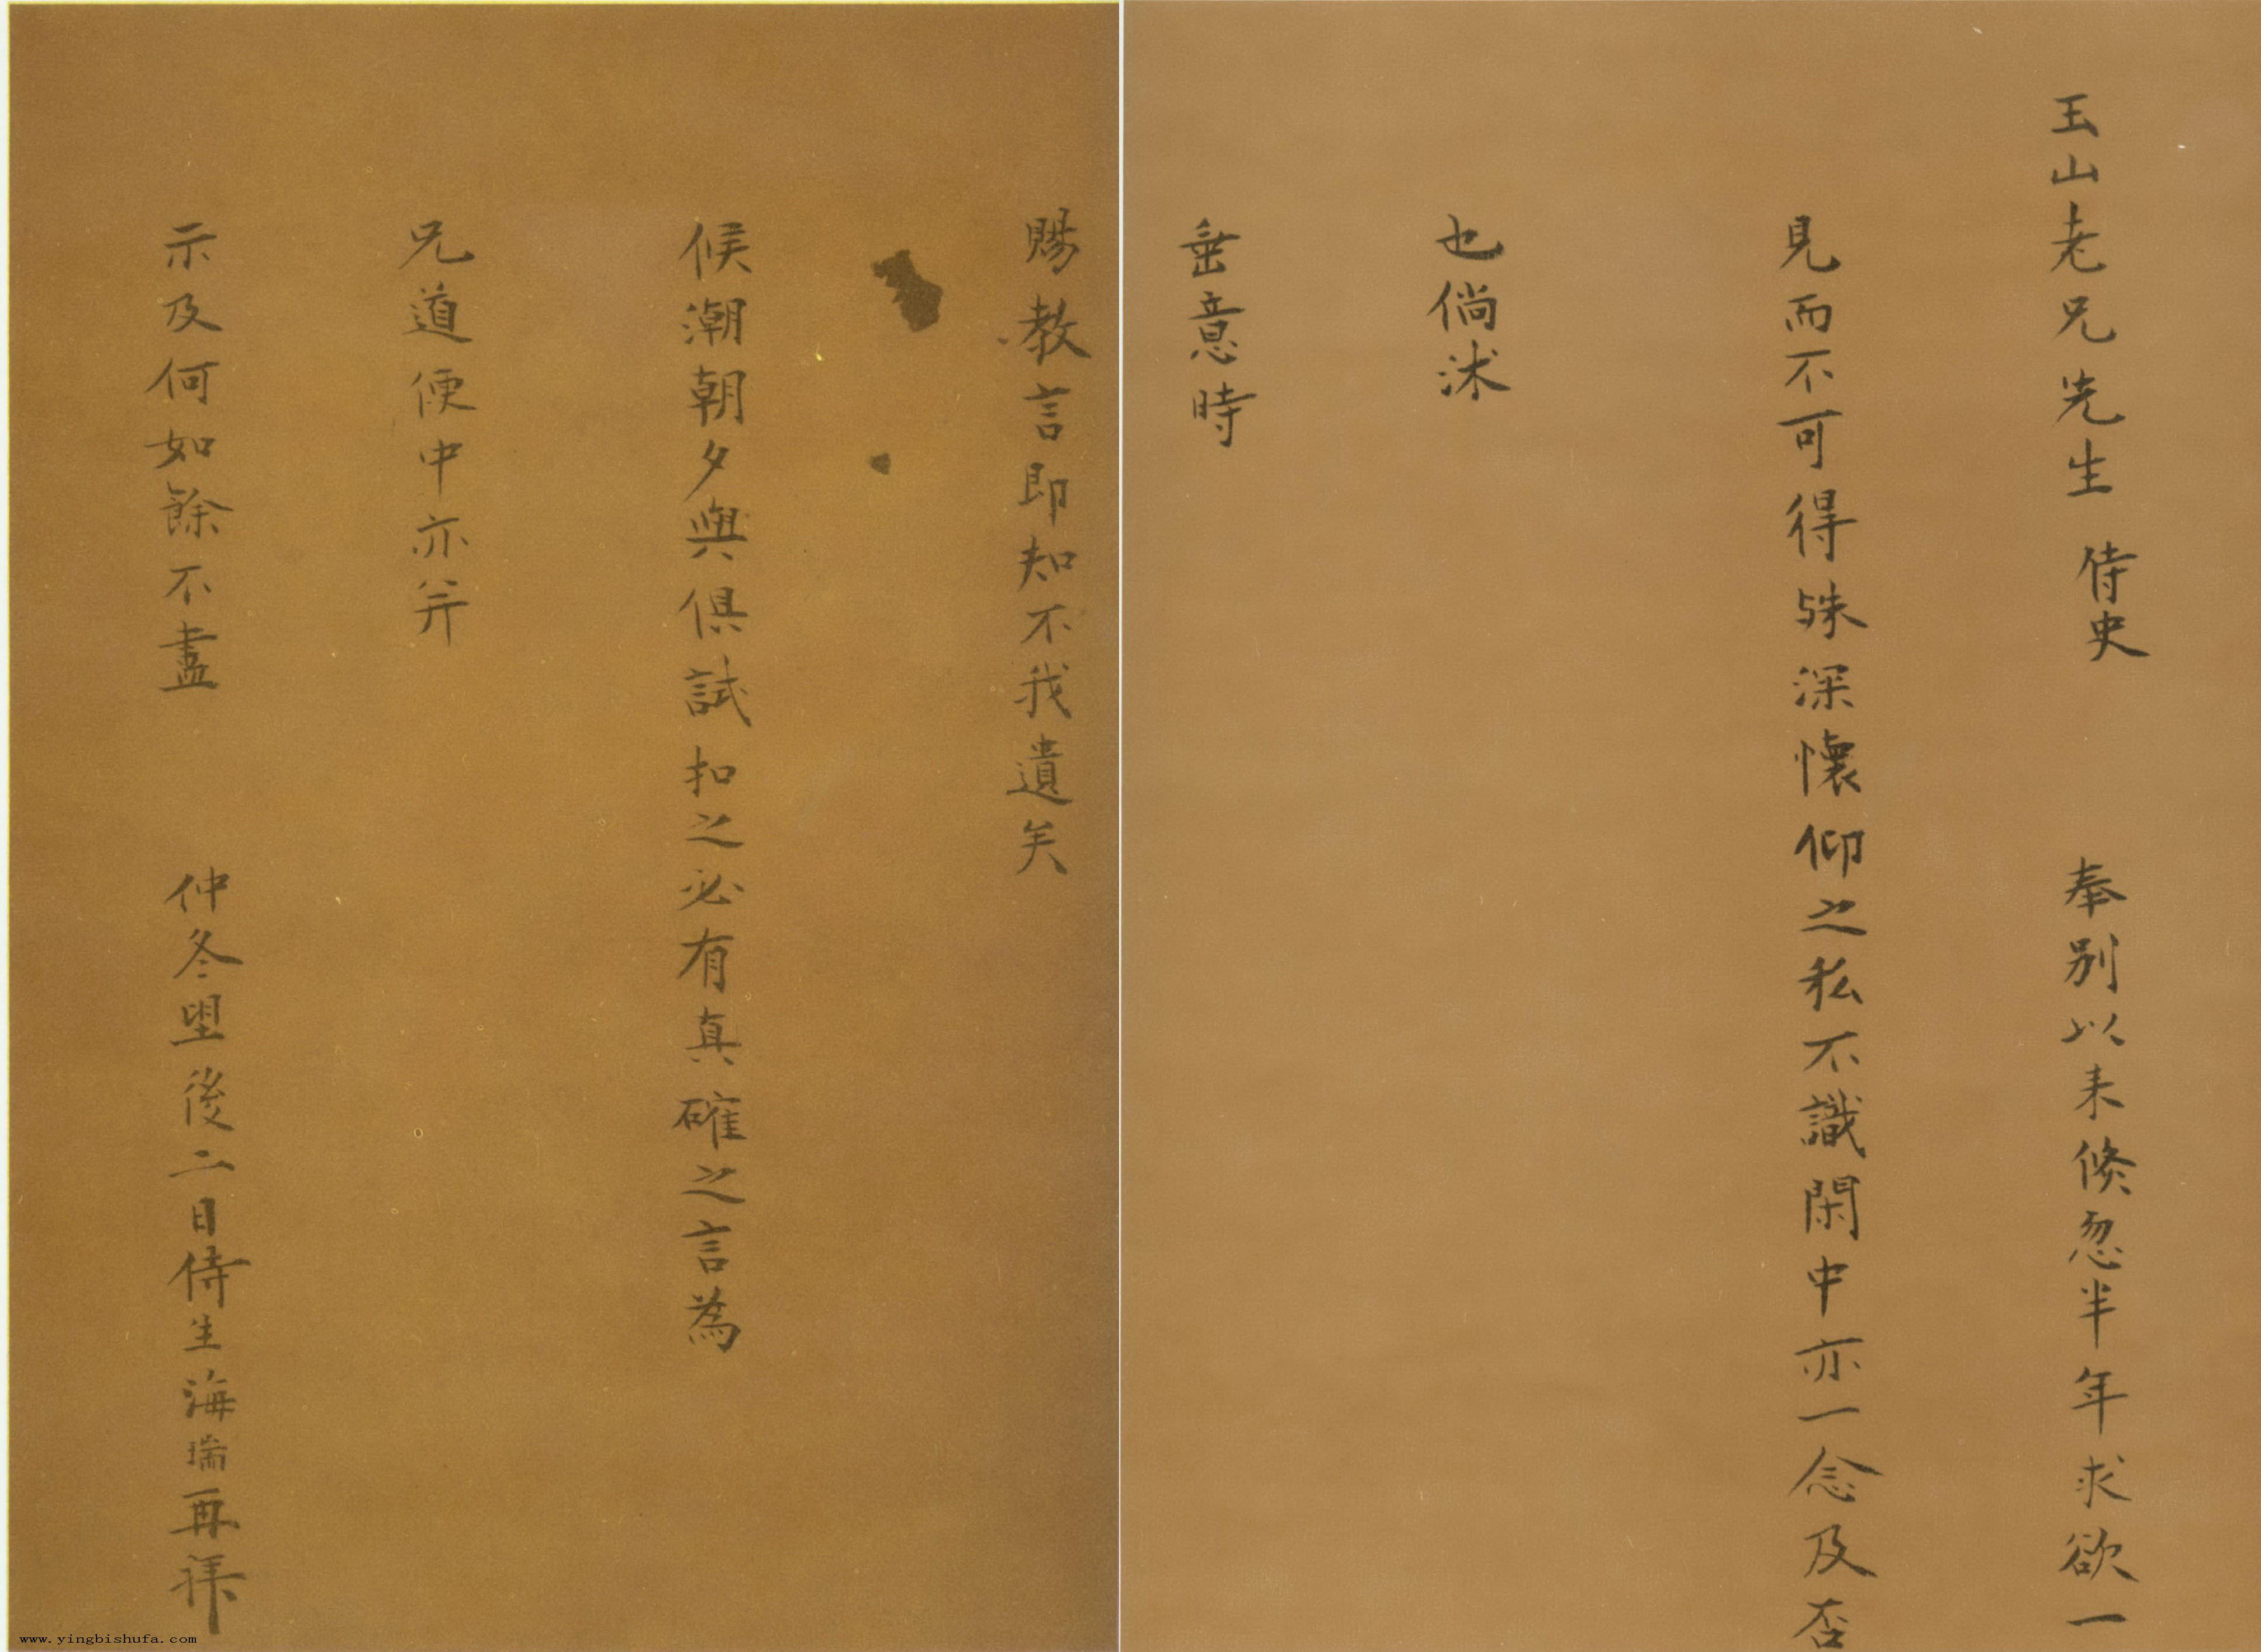 玉山老兄先生侍史 奉別以来倏忽半年求欲一
見而不可得殊深懷仰之私不識閑中亦一念及否
也倘沭
垂意時
賜教言即知不我遺矣
候潮朝夕與俱試扣之必有真確之言為
兄道便中亦并
示及何如餘不盡 仲冬朢後二日侍生海瑞再拜
www.yingbishufa.com